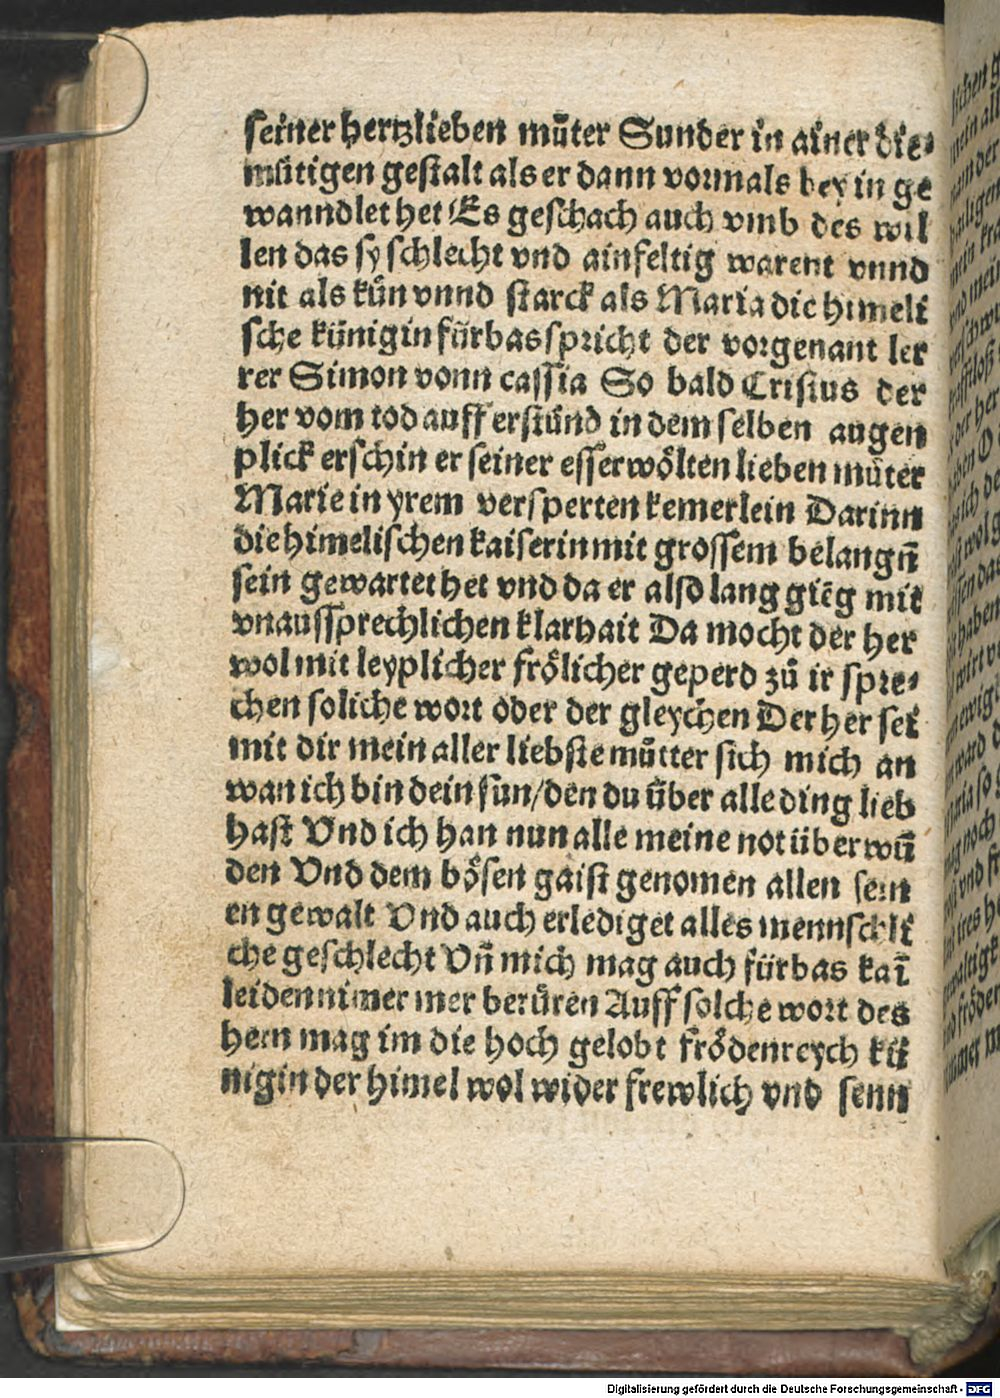 seiner hertzlieben můter Sunder in ainer die⸗
mütigen gestalt als er dann vormals bey in ge
wanndlet het Es geschach auch vmb des wil
len das sy schlecht vnd ainfeltig warent vnnd
nit als kün vnnd starck als Maria die himeli
sche künigin fürbas spricht der vorgenant ler
rer Simon vonn cassia So bald Cristus der
her vom tod auff erstůnd in dem selben augen
plick erschin er seiner esserwölten lieben můter
Marie in yrem versperten kemerlein Darinn
die himelischen kaiserin mit grossem belangñ
sein gewartet het vnd da er also lang gieg mit
vnaussprechlichen klarhait Da mocht der her
wol mit leyplicher frölicher geperd zů ir spre⸗
chen soliche wort oder der gleychen Der her sei
mit dir mein aller liebste můtter sich mich an
wan ich bin dein sun/den du über alle ding lieb
hast Vnd ich han nun alle meine not überwū
den Vnd dem bösen gaist genomen allen sein
en gewalt Vnd auch erlediget alles mennschli
che geschlecht Vñ mich mag auch fürbas kaī
leiden nimer mer berüren Auff solche wort des
hern mag im die hoch gelobt frödenreych kü
nigin der himel wol wider frewlich vnd senn
Digitalisierung gefördert durch die Deutsche Forschungsgemeinschaft - DFG